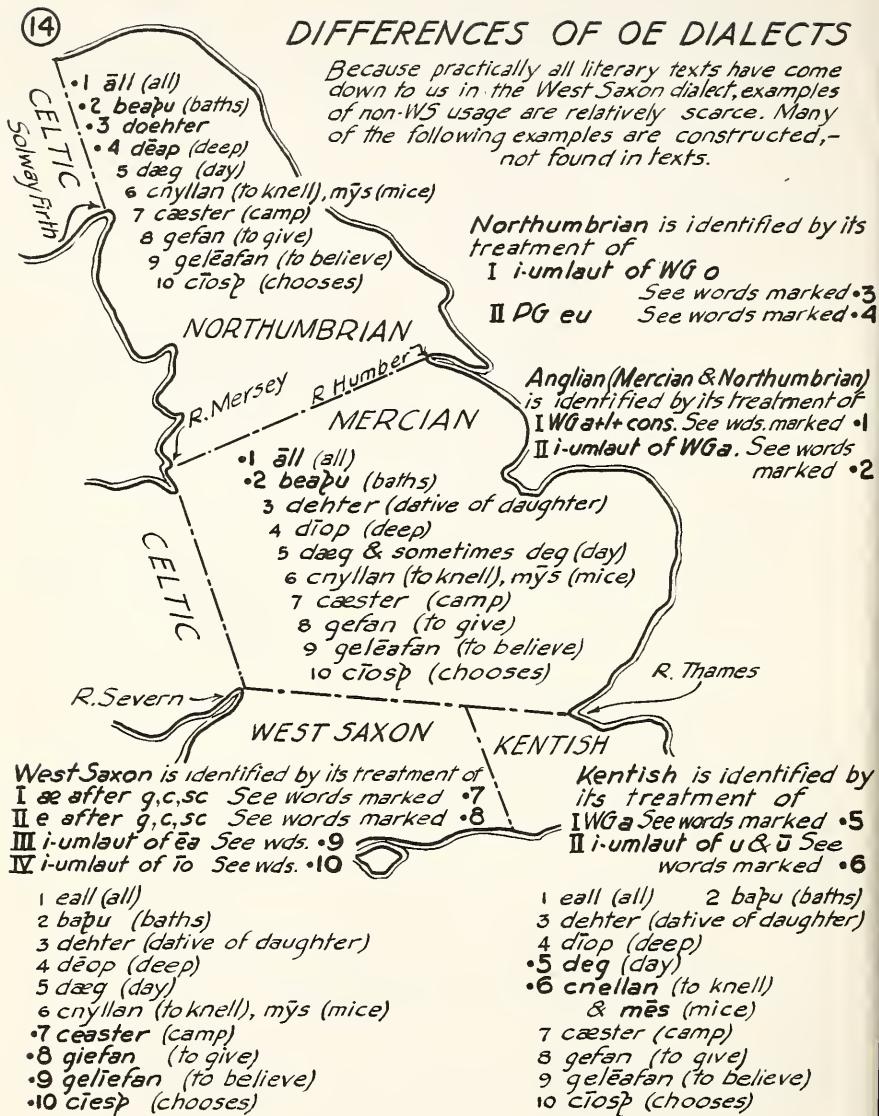 14
DIFFERENCES OF OE DIALECTS
Because practically all literary texts have come
down to us in the West Saxon dialect, examples
of non-WS usage are relatively scarce. Many
of the following examples are constructed,–
not found in texts.
CELTIC
Solway Firth
•1 āll (all)
•2 beaþu (baths)
•3 doehter
•4 dēap (deep)
5 dæg (day)
6 cnyllan (to knell), mȳs (mice)
7 cæster (camp)
8 gefan (to give)
9 gelēafan (to believe)
10 cīosþ (chooses)
NORTHUMBRIAN
Northumbrian is identified by its
treatment of
I i-umlaut of WG o
See words marked •3
II PG eu See words marked •4
R. Mersey
R Humber
Anglian (Mercian & Northumbrian)
is identified by its treatment of
I WG a+l+ cons. See wds. marked •1
II i-umlaut of WG a. See words
marked •2
MERCIAN
•1 āll (all)
•2 beaþu (baths)
3 dehter (dative of daughter)
4 dīop (deep)
5 dæg & sometimes deg (day)
6 cnyllan (to knell), mȳs (mice)
7 cæster (camp)
8 gefan (to give)
9 gelēafan (to believe)
10 cīosþ (chooses)
CELTIC
R. Severn
R. Thames
WEST SAXON
KENTISH
West Saxon is identified by its treatment of
I æ after g,c,sc See words marked •7
II e after g,c,sc See words marked •8
III i-umlaut of ēa See wds. •9
IV i-umlaut of īo See wds. •10
1 eall (all)
2 baþu (baths)
3 dehter (dative of daughter)
4 dēop (deep)
5 dæg (day)
6 cnyllan (to knell), mȳs (mice)
•7 ceaster (camp)
•8 giefan (to give)
•9 gelīefan (to believe)
•10 cīesþ (chooses)
Kentish is identified by
its treatment of
I WG a See words marked •5
II i-umlaut of u & ū See
words marked •6
1 eall (all) 2 baþu (baths)
3 dehter (dative of daughter)
4 dīop (deep)
•5 deg (day)
•6 cnellan (to knell)
& mēs (mice)
7 cæster (camp)
8 gefan (to give)
9 gelēafan (to believe)
10 cīosþ (chooses)